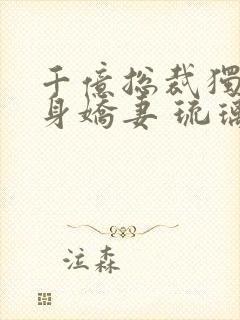 千億總裁獨
身嬌妻 琉璃
泣森